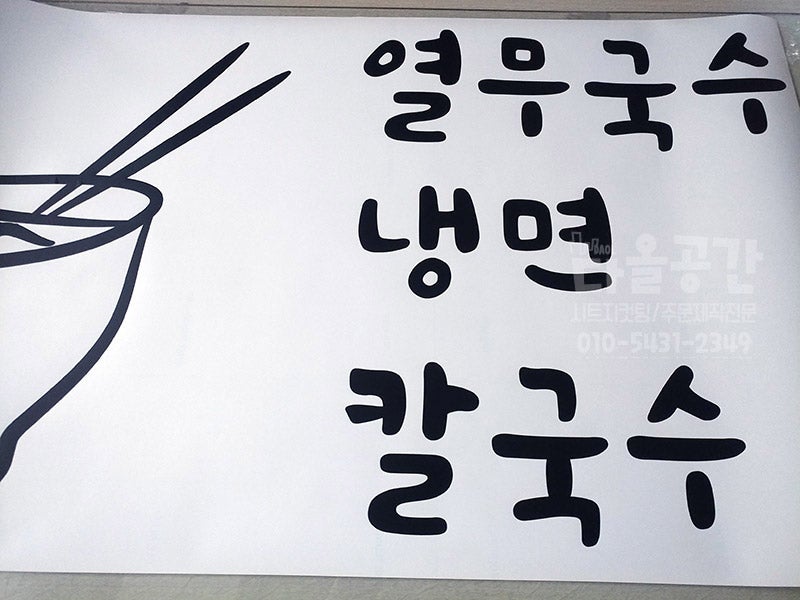 열무국수
냉면
칼국수
나올공간
시트지컷팅/주문제작전문
010-5431-2349